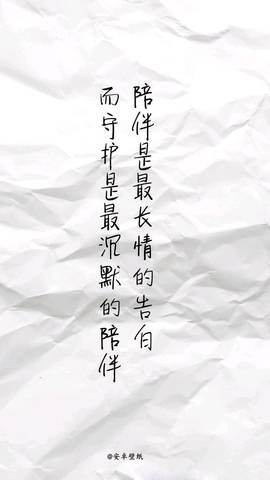 陪伴是最长情的告白
而守护是最沉默的陪伴
@安卓壁纸